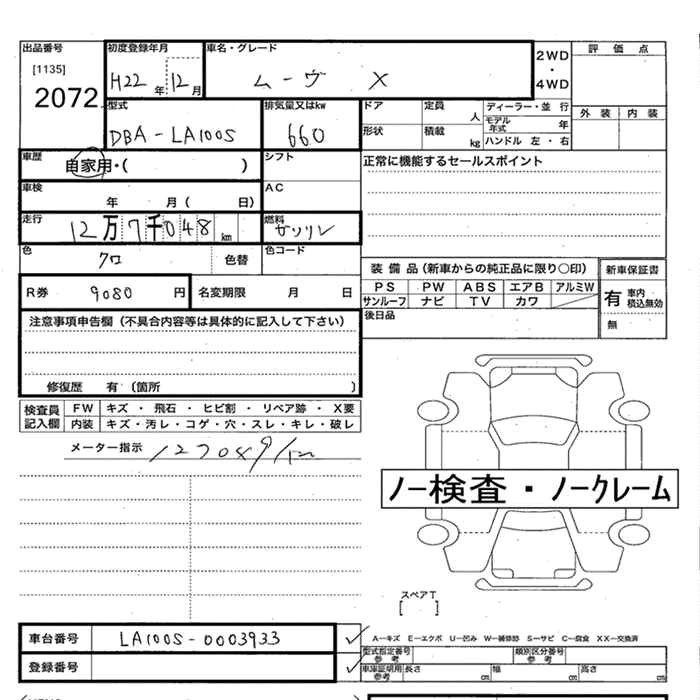 出品番号 初度登録年月 車名・グレード 2WD・4WD 評価点
[1135] H22年 12月 ムーヴ X
2072 外装 内装
型式 排気量又はkw ドア 定員 人 ディーラー・並行
DBA-LA100S 660 モデル年式 年
形状 積載 kg ハンドル 左・右
車歴 自家用・( ) シフト 正常に機能するセールスポイント
車検 年 月( 日) AC
走行 12万7千048km 燃料 ガソリン
色 クロ 色替 色コード
装備品(新車からの純正品に限り○印) 新車保証書
R券 9080円 名変期限 月 日 PS PW ABS エアB アルミW 有 車内積込無効
サンルーフ ナビ TV カワ
注意事項申告欄(不具合内容等は具体的に記入して下さい) 後日品 無
修復歴 有(箇所 )
検査員記入欄 FW キズ・飛石・ヒビ割・リペア跡・X要
内装 キズ・汚レ・コゲ・穴・スレ・キレ・破レ
メーター指示 127049km
ノー検査・ノークレーム
スペアT
[ ]
車台番号 LA100S-0003933 A—キズ E—エクボ U—凹み W—補修跡 S—サビ C—腐食 XX—交換済
型式指定番号 参考 類別区分番号 参考
登録番号 車庫証明用 参考 長さ cm 幅 cm 高さ cm